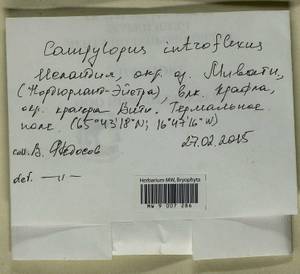 Campylopus introflexus
Исландия, окр. оз. Миватн,
(Нордюрлант-Эйстра), влк. Крафла,
окр. кратера Вити. Термальное
поле (65°43'18"N; 16°47'16"W)
27.02.2015
coll. В. Федосов
det. —〃—
Herbarium MW, Bryophyta
MW 9 007 286